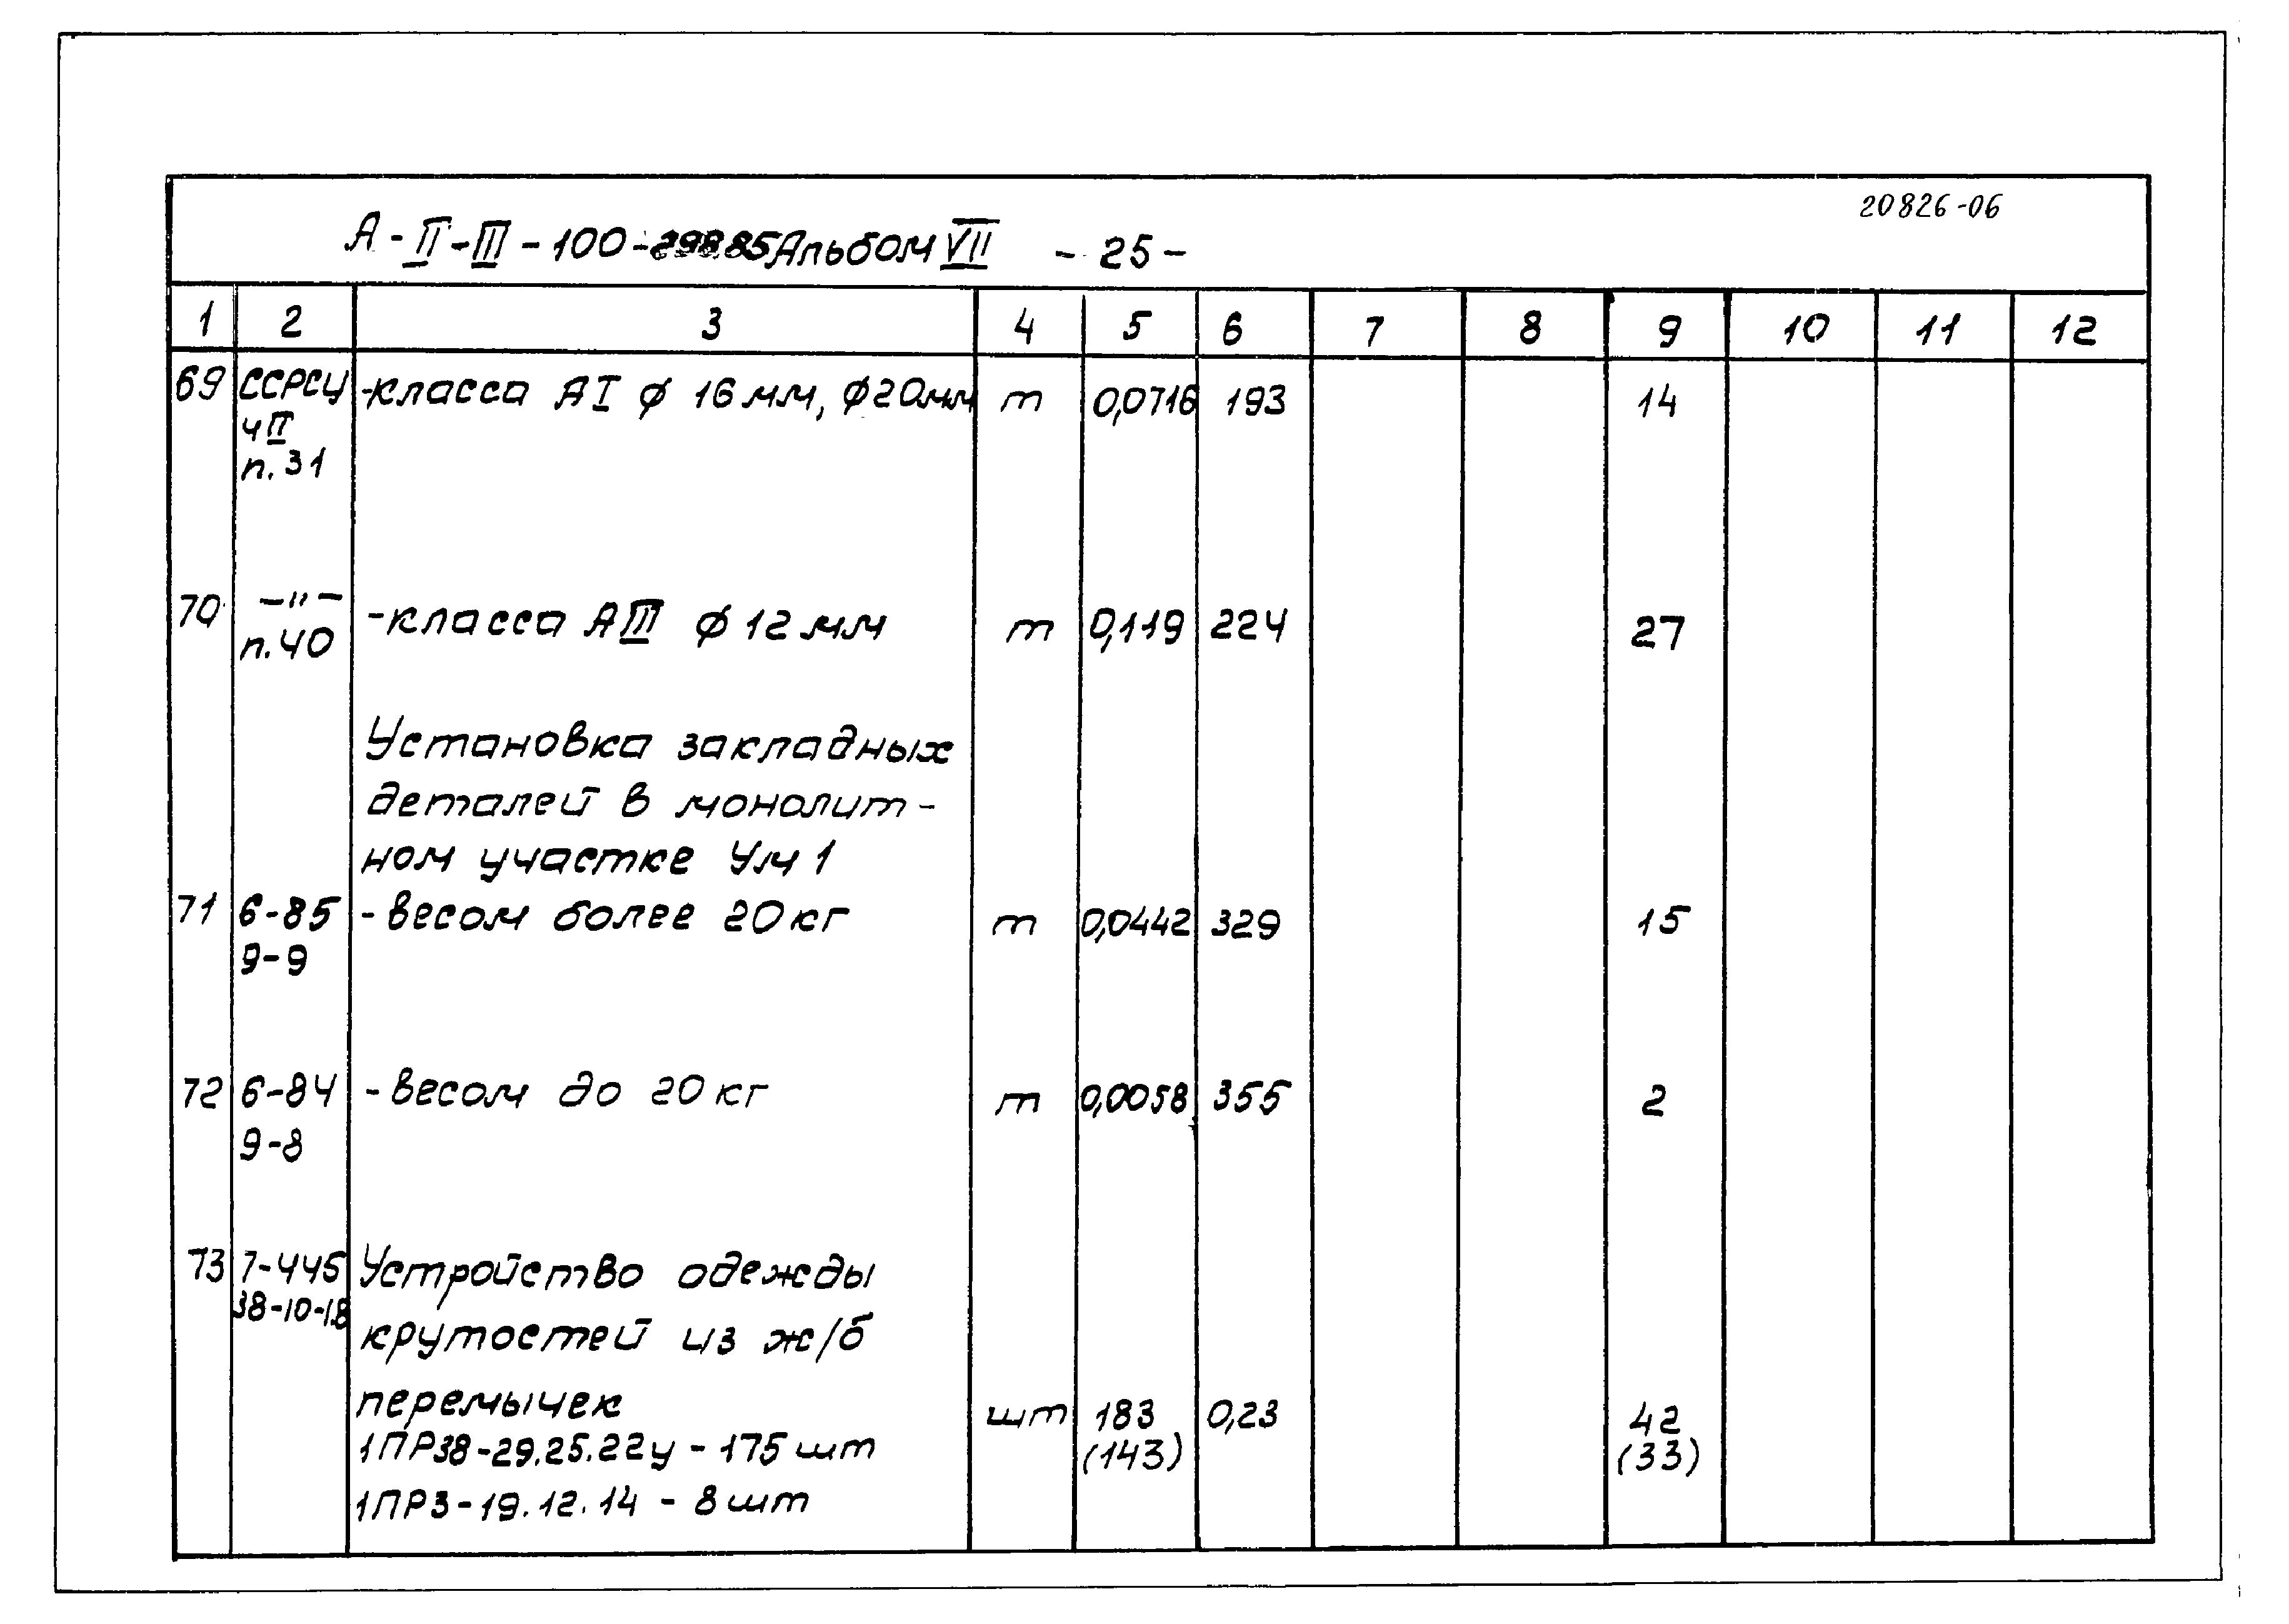 20826-06
А-II-III-100-298.85 Альбом VII - 25 -
1 2 3 4 5 6 7 8 9 10 11 12
69 ССРСЦ -класса АI ф 16мм, ф20мм т 0,0716 193 14
ч II
п.31
70 -"- -класса АIII ф 12мм т 0,119 224 27
п.40
Установка закладных
деталей в монолит-
ном участке Ум 1
71 6-85 -весом более 20кг т 0,0442 329 15
9-9
72 6-84 -весом до 20кг т 0,0058 355 2
9-8
73 7-445 Устройство одежды
38-10-1.8
крутостей из ж/б
перемычек шт 183 0,23 42
1ПР38-29.25.22у - 175 шт (143) (33)
1ПР3-19.12.14 - 8 шт